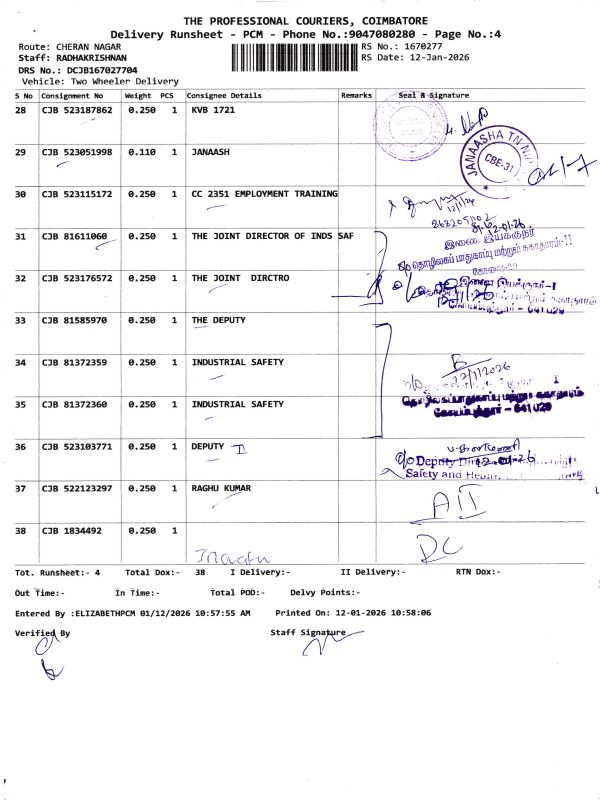 THE PROFESSIONAL COURIERS, COIMBATORE
Delivery Runsheet - PCM - Phone No.:9047080280 - Page No.:4
Route: CHERAN NAGAR
RS No.: 1670277
Staff: RADHAKRISHNAN
RS Date: 12-Jan-2026
DRS No.: DCJB167027704
Vehicle: Two Wheeler Delivery
S No Consignment No Weight PCS Consignee Details Remarks Seal & Signature
28 CJB 523187862 0.250 1 KVB 1721
29 CJB 523051998 0.110 1 JANAASH
JANAASHA TN
CBE-31
30 CJB 523115172 0.250 1 CC 2351 EMPLOYMENT TRAINING
12/1/26
31 CJB 81611060 0.250 1 THE JOINT DIRECTOR OF INDS SAF
12-01-26
இணை இயக்குநர்
தொழிலகப் பாதுகாப்பு மற்றும் சுகாதாரம்-II
32 CJB 523176572 0.250 1 THE JOINT DIRCTRO
இணை இயக்குநர்-I
641 029
33 CJB 81585970 0.250 1 THE DEPUTY
34 CJB 81372359 0.250 1 INDUSTRIAL SAFETY
35 CJB 81372360 0.250 1 INDUSTRIAL SAFETY
தொழிலகப்பாதுகாப்பு மற்றும் சுகாதாரம்
கோயம்புத்தூர் - 641 029
36 CJB 523103771 0.250 1 DEPUTY I
Deputy
Safety and
37 CJB 522123297 0.250 1 RAGHU KUMAR
38 CJB 1834492 0.250 1
Tot. Runsheet:- 4 Total Dox:- 38 I Delivery:- II Delivery:- RTN Dox:-
Out Time:- In Time:- Total POD:- Delvy Points:-
Entered By :ELIZABETHPCM 01/12/2026 10:57:55 AM Printed On: 12-01-2026 10:58:06
Verified By Staff Signature